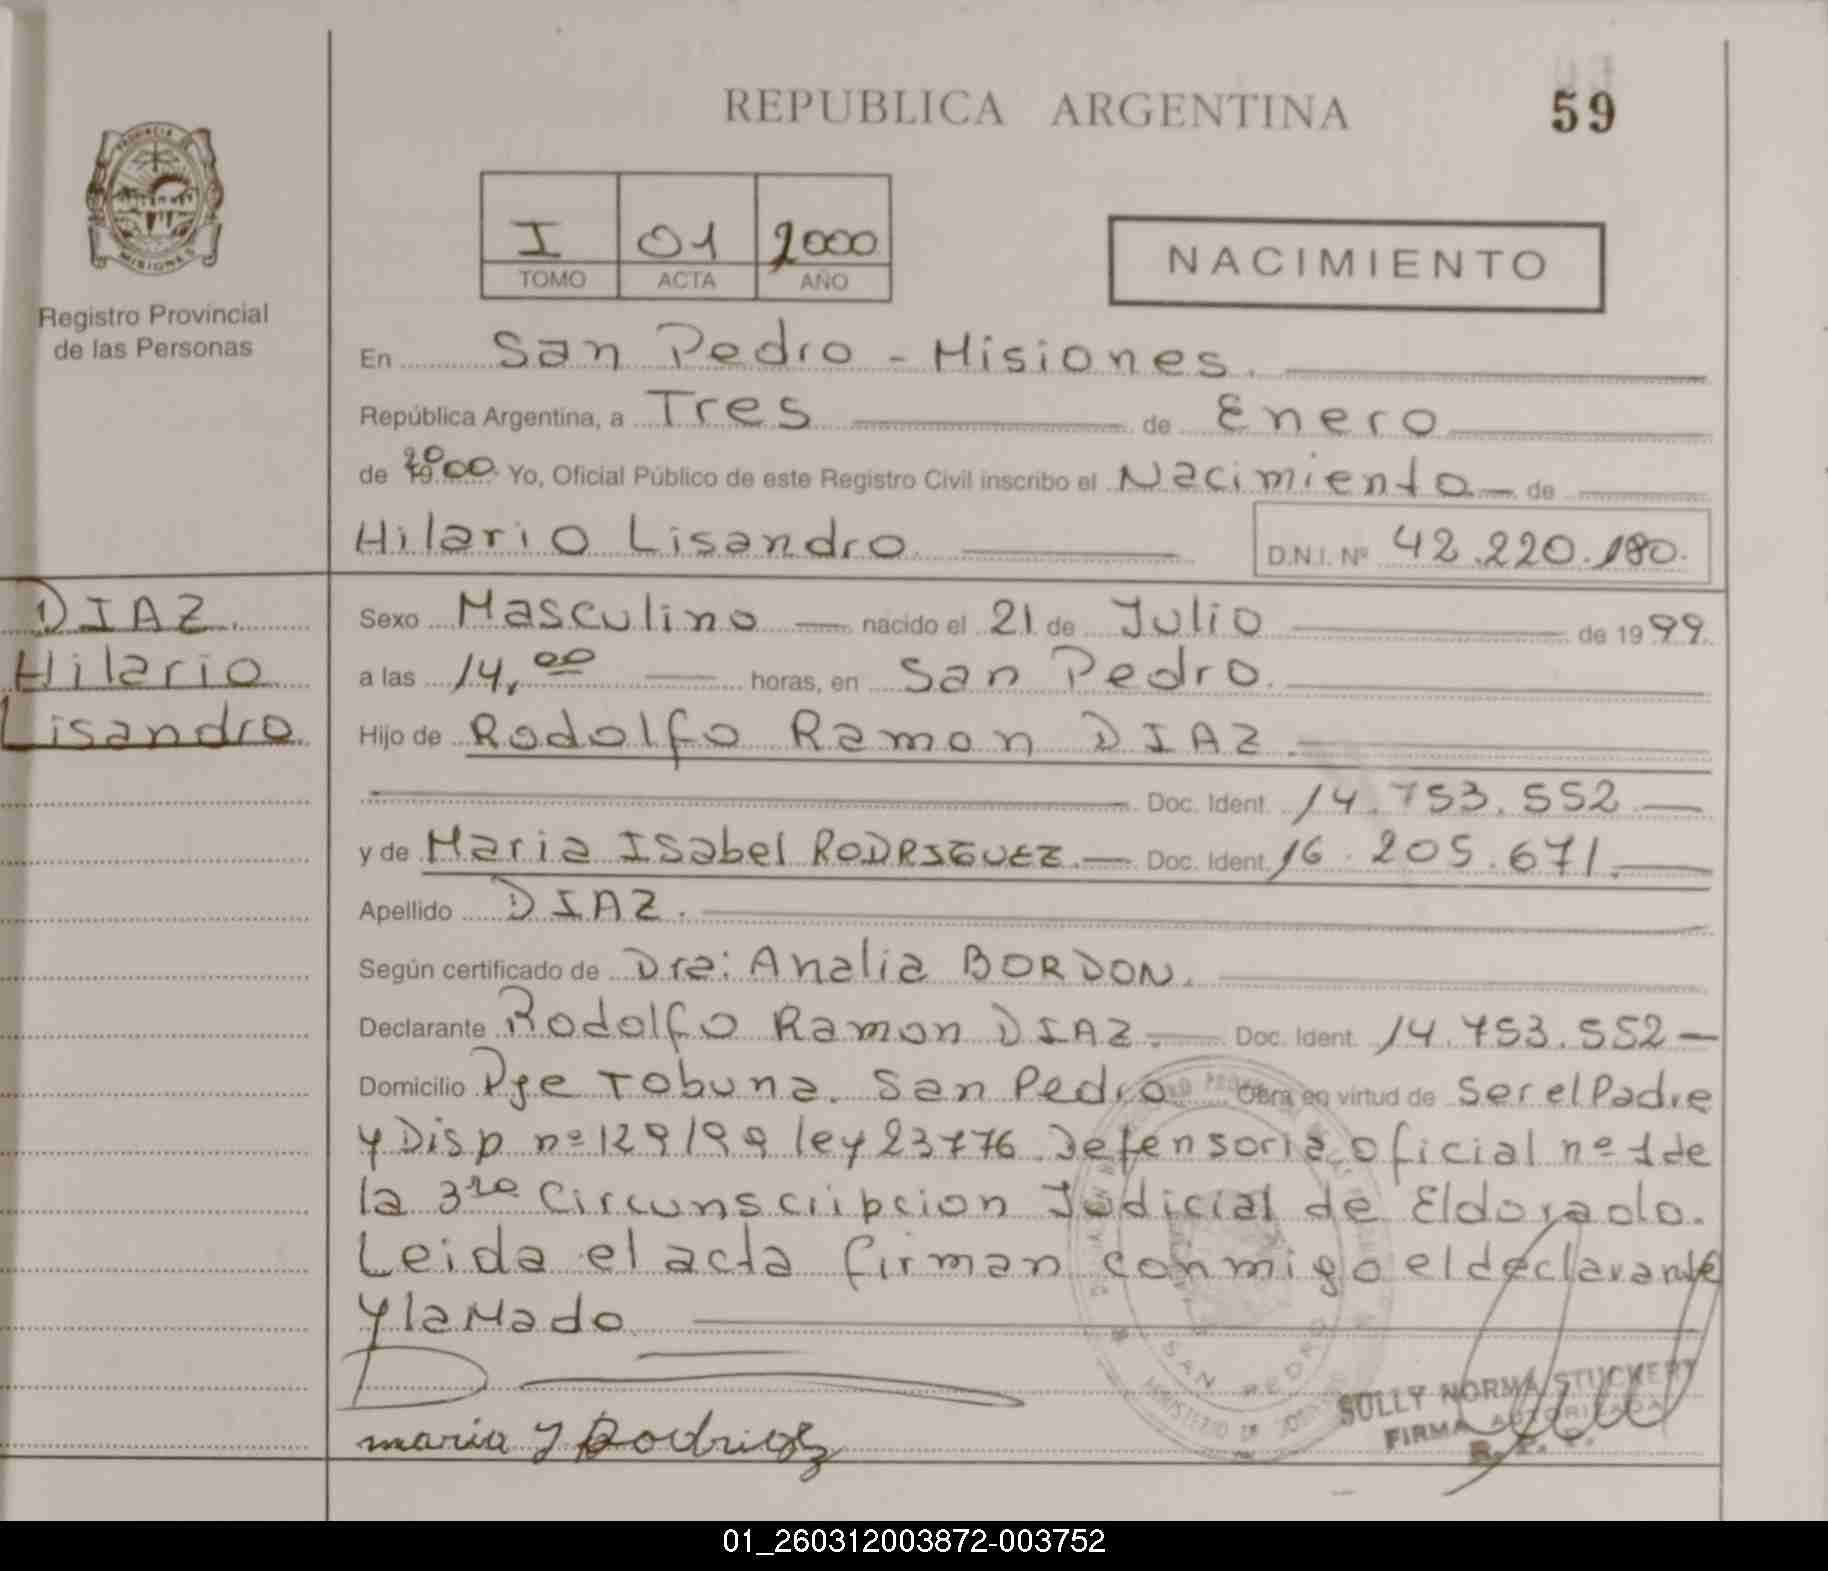 REPUBLICA ARGENTINA
59
PROVINCIA DE MISIONES
Registro Provincial
de las Personas
I 01 2000
TOMO ACTA AÑO
NACIMIENTO
En San Pedro - Misiones.
República Argentina, a Tres de Enero
de 2000 Yo, Oficial Público de este Registro Civil inscribo el Nacimiento de
Hilario Lisandro D.N.I. Nº 42.220.180.
DIAZ.
Hilario
Lisandro
Sexo Masculino nacido el 21 de Julio de 1999.
a las 14,00 horas, en San Pedro.
Hijo de Rodolfo Ramon DIAZ.
Doc. Ident. 14.753.552
y de Maria Isabel RODRIGUEZ. Doc. Ident. 16.205.671.
Apellido DIAZ.
Según certificado de Dra: Analia BORDON.
Declarante Rodolfo Ramon DIAZ. Doc. Ident. 14.753.552
Domicilio Pje Tobuna. San Pedro Obra en virtud de ser el Padre
y Disp nº 129/99 ley 23776. Defensoria oficial nº 1 de
la 3ra Circunscripcion Judicial de Eldorado.
Leida el acta firman conmigo el declarante
y la Mado
maria I Rodriguez
SAN PEDRO
MINISTERIO DE
SULLY NORMA STUCKERT
FIRMA AUTORIZADA
R. P. P.
01_260312003872-003752